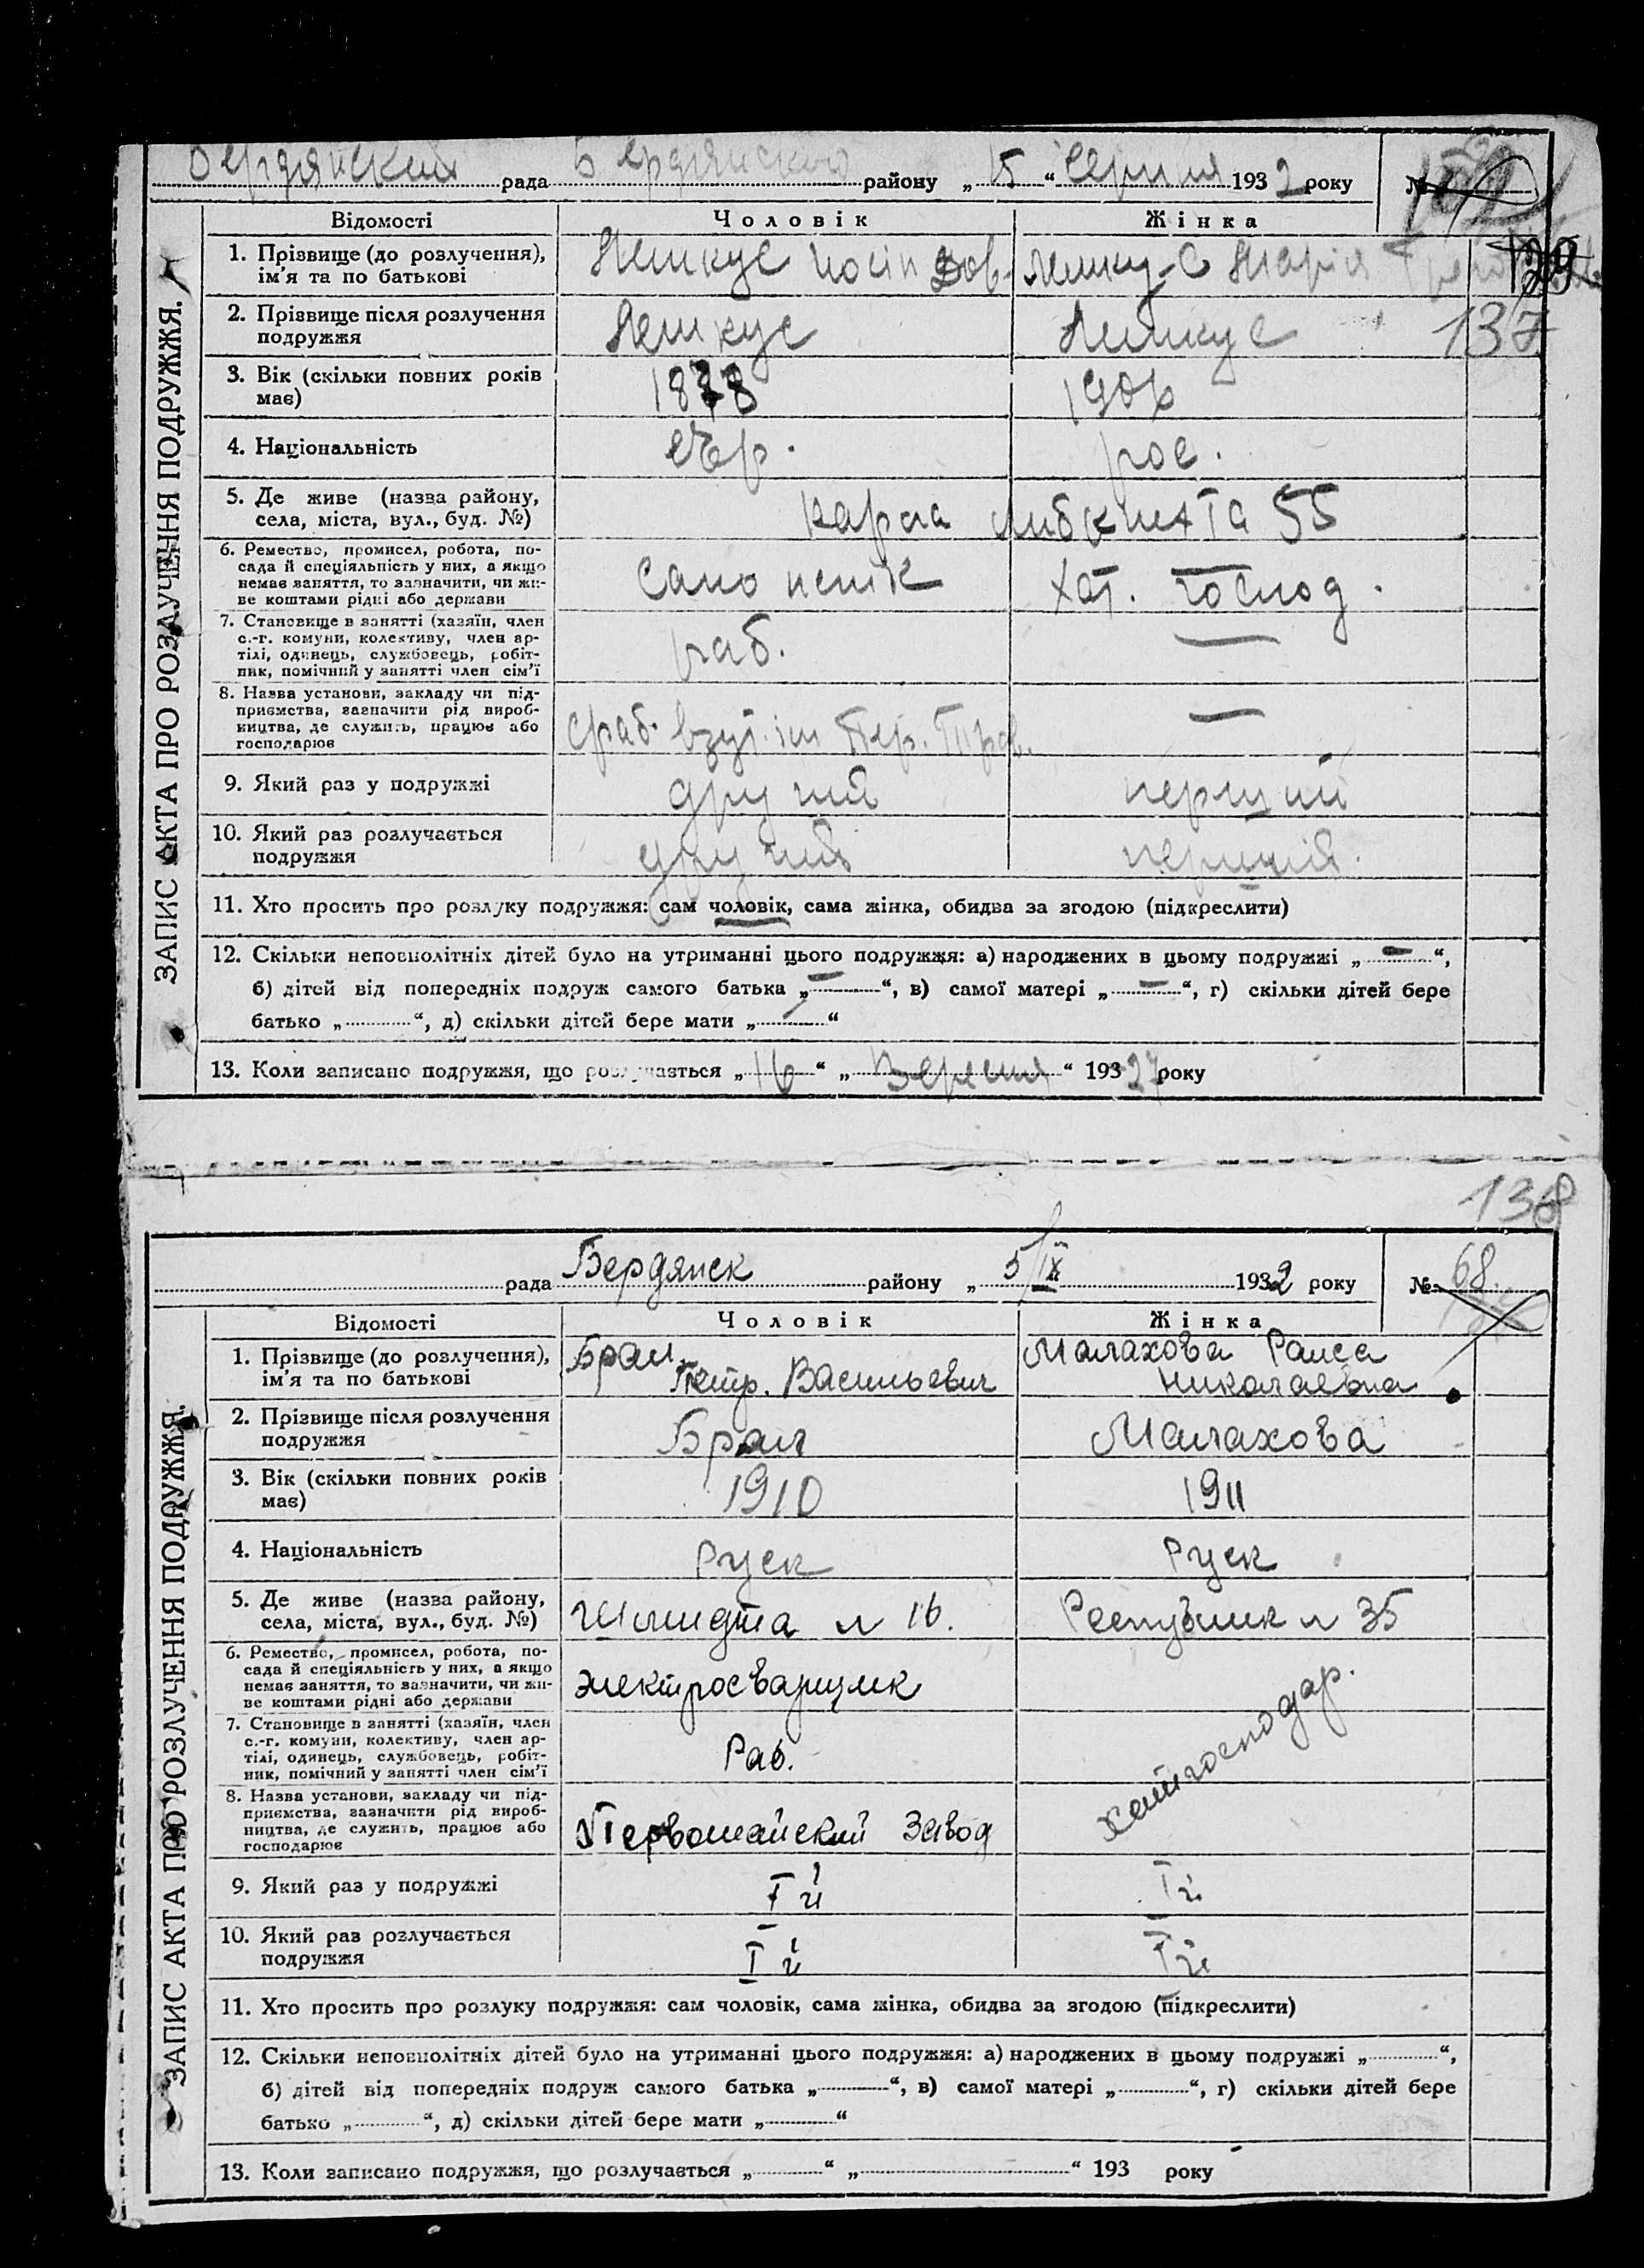 ЗАПИС АКТА ПРО РОЗЛУЧЕННЯ ПОДРУЖЖЯ.
Бердянский рада Бердянского району „15“ Серпня 1932 року №
129
137
Відомості Чоловік Жінка
1. Прізвище (до розлучення), ім'я та по батькові
Лемкус Иосіп Дов. Лемку-с Марія
2. Прізвище після розлучення подружжя
Лемкус Лемкус
3. Вік (скільки повних років має)
1878 190
4. Національність
євр. рос.
5. Де живе (назва району, села, міста, вул., буд. №)
Карла Либкнхта 55
6. Ремество, промисел, робота, посада й спеціяльність у них, а якщо немає заняття, то зазначити, чи живе коштами рідні або держави
Сапожник хат. господ.
7. Становище в занятті (хазяїн, член с.-г. комуни, колективу, член артілі, одинець, службовець, робітник, помічний у занятті член сім'ї
раб. —
8. Назва установи, закладу чи підприємства, зазначити рід виробництва, де служить, працює або господарює
взут. ім Пер. —
9. Який раз у подружжі
другий перший
10. Який раз розлучається подружжя
другий перший.
11. Хто просить про розлуку подружжя: сам чоловік, сама жінка, обидва за згодою (підкреслити)
12. Скільки неповнолітніх дітей було на утриманні цього подружжя: а) народжених в цьому подружжі „—“,
б) дітей від попередніх подруж самого батька „—“, в) самої матері „—“, г) скільки дітей бере
батько „ “, д) скільки дітей бере мати „—“
13. Коли записано подружжя, що розлучається „16“ „Вересня“ 193 27 року
138
ЗАПИС АКТА ПРО РОЗЛУЧЕННЯ ПОДРУЖЖЯ.
рада Бердянск району „5/IX 1932 року № 68.
Відомості Чоловік Жінка
1. Прізвище (до розлучення), ім'я та по батькові
Браг Малахова Раиса
Петр. Васильевич Николаевна
2. Прізвище після розлучення подружжя
Браг Малахова
3. Вік (скільки повних років має)
1910 1911
4. Національність
Руск Руск
5. Де живе (назва району, села, міста, вул., буд. №)
Шмидта № 16. Республик № 35
6. Ремество, промисел, робота, посада й спеціяльність у них, а якщо немає заняття, то зазначити, чи живе коштами рідні або держави
Электросварщик
хатгосподар.
7. Становище в занятті (хазяїн, член с.-г. комуни, колективу, член артілі, одинець, службовець, робітник, помічний у занятті член сім'ї
Раб.
8. Назва установи, закладу чи підприємства, зазначити рід виробництва, де служить, працює або господарює
Первомайский завод
9. Який раз у подружжі
Iй Iй
10. Який раз розлучається подружжя
Iй Iй
11. Хто просить про розлуку подружжя: сам чоловік, сама жінка, обидва за згодою (підкреслити)
12. Скільки неповнолітніх дітей було на утриманні цього подружжя: а) народжених в цьому подружжі „ “,
б) дітей від попередніх подруж самого батька „ “, в) самої матері „ “, г) скільки дітей бере
батько „ “, д) скільки дітей бере мати „ “
13. Коли записано подружжя, що розлучається „ “ „ “ 193 року